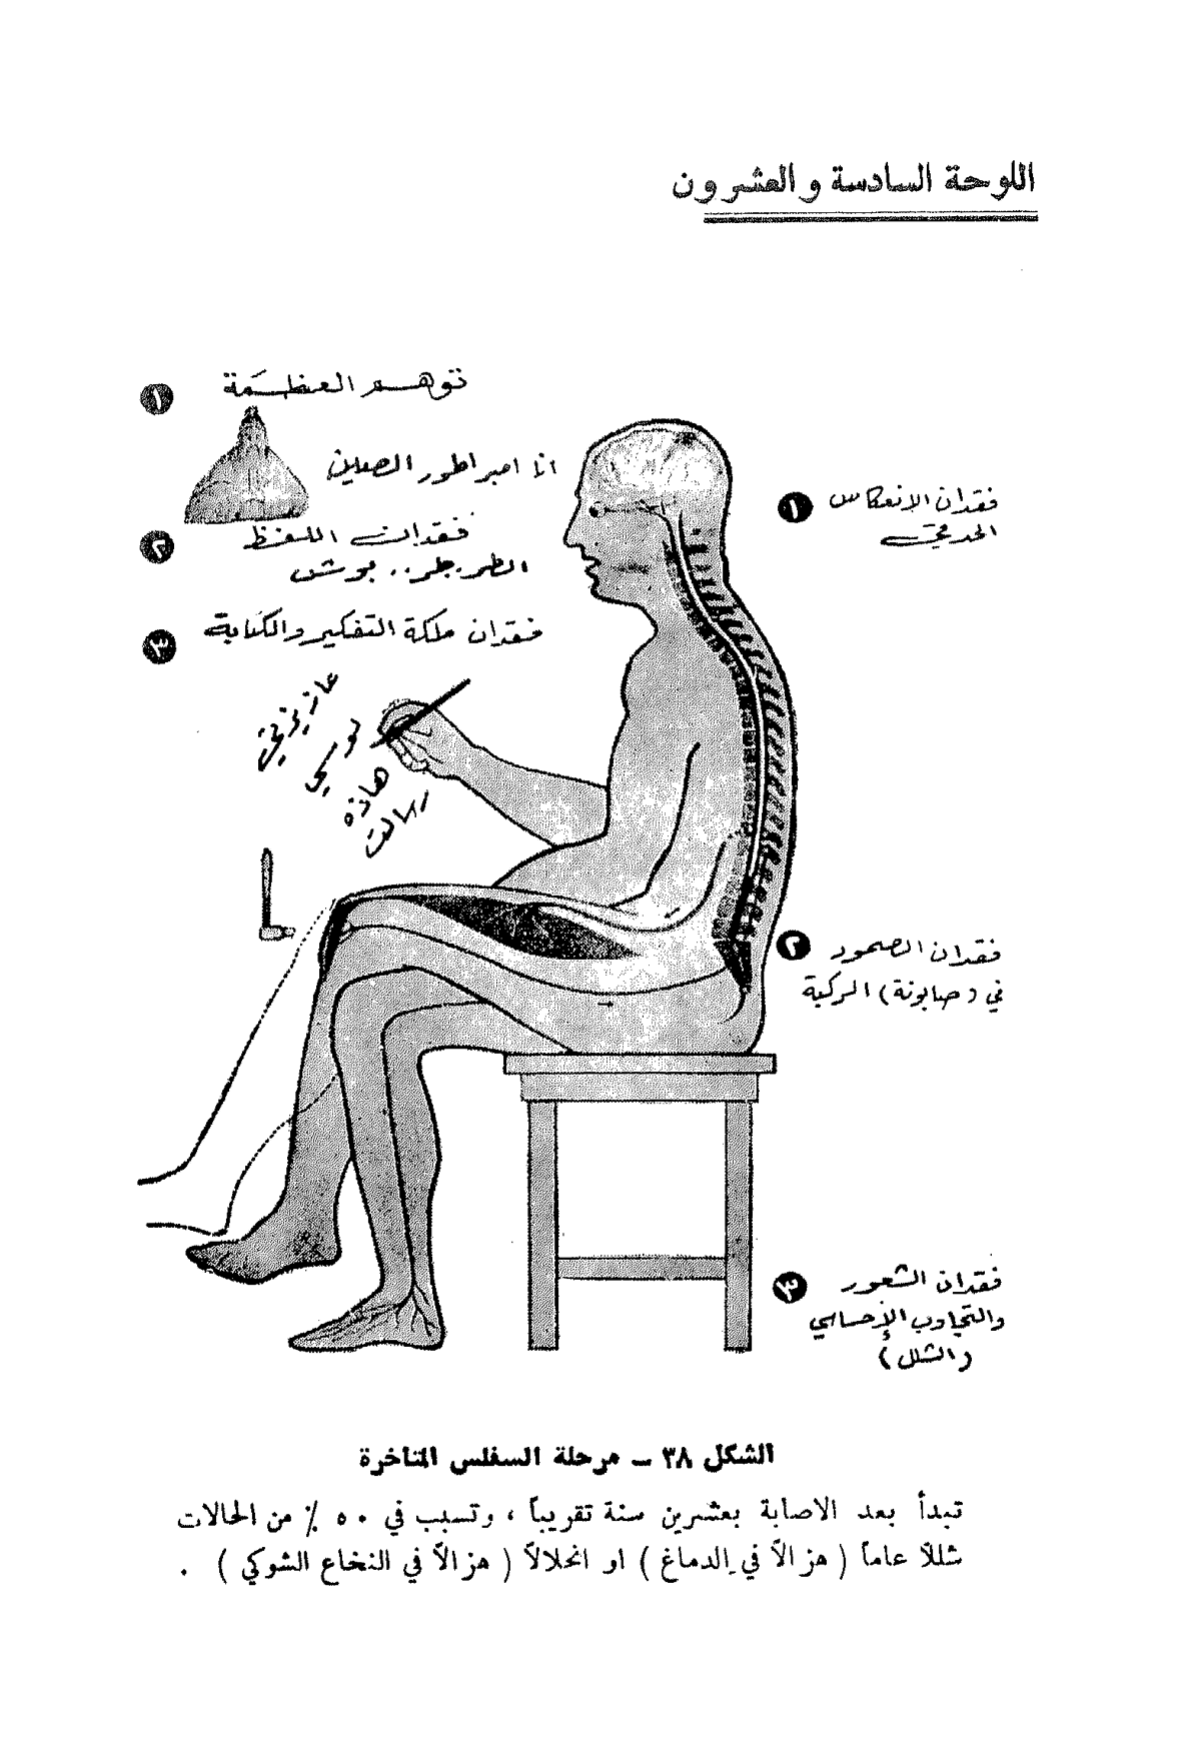 اللوحة السادسة والعشرون
١ توهم العظمة
انا امبراطور الصين
٢ فقدان اللفظ
الطر.جلر.. بوش
٣ فقدان ملكة التفكير والكتابة
عازيزتي
لوسي
هاذه
رسالت
١ فقدان الانعكاس
الحدقي
٢ فقدان الصمود
في (صابونة) الركبة
٣ فقدان الشعور
والتجاوب الإحساسي
(الشلل)
الشكل ٣٨ – مرحلة السفلس المتاخرة
تبدأ بعد الاصابة بعشرين سنة تقريباً ، وتسبب في ٥٠ ٪ من الحالات
شللاً عاماً ( هزالاً في الدماغ ) او انحلالاً ( هزالاً في النخاع الشوكي ) .